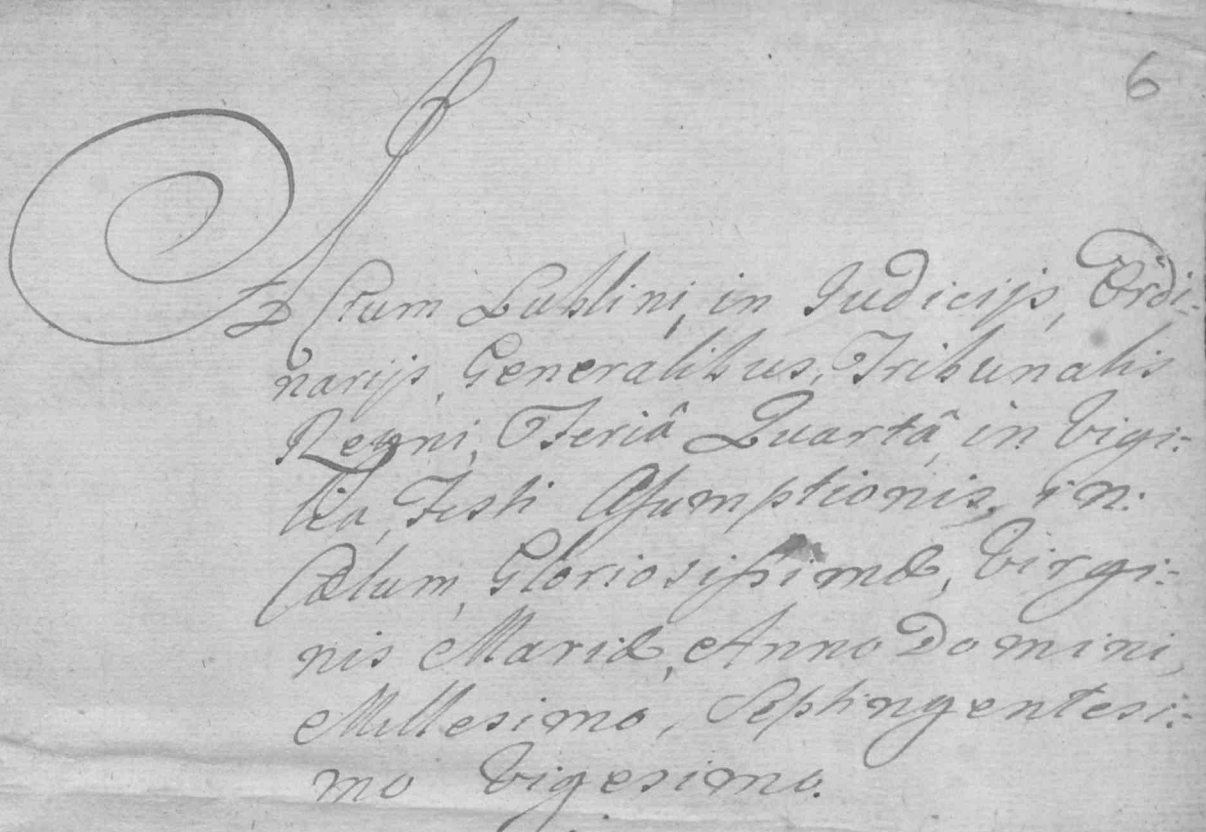 6
Actum Lublini, in Judicijs, Ordi-
narijs, Generalibus, Tribunalis
Regni, Feriâ Quartâ, in Vigi-
lia, Festi Assumptionis, in
Cælum, Gloriosissimæ, Virgi-
nis Mariæ, Anno Domini,
Millesimo, Septingentesi-
mo Vigesimo.